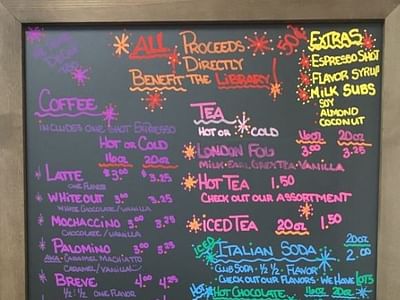 ALL PROCEEDS
DIRECTLY
BENEFIT THE LIBRARY!
50¢ EXTRAS
ESPRESSO SHOT
FLAVOR SYRUP
MILK SUBS
SOY
ALMOND
COCONUT
COFFEE
INCLUDES ONE SHOT ESPRESSO
HOT OR COLD
16oz 20oz
LATTE $3.00 $3.25
ONE FLAVOR
WHITEOUT 3.00 3.25
WHITE CHOCOLATE/VANILLA
MOCHACCINO 3.00 3.25
CHOCOLATE/VANILLA
PALOMINO 3.00 3.25
AKA CARMEL MACHIATTO
CARAMEL/VANILLA
BREVE 4.00 4.25
1/2 : 1/2 ONE FLAVOR
TEA
HOT OR COLD
16oz 20oz
LONDON FOG 3.00 3.25
MILK. EARL GREY TEA. VANILLA
HOT TEA 1.50
CHECK OUT OUR ASSORTMENT
ICED TEA 20oz 1.50
20oz
ICED ITALIAN SODA 2.00
CLUB SODA. 1/2 1/2. FLAVOR
CHECK OUT OUR FLAVORS. WE HAVE LOTS
HOT HOT CHOCOLATE 16oz 20oz